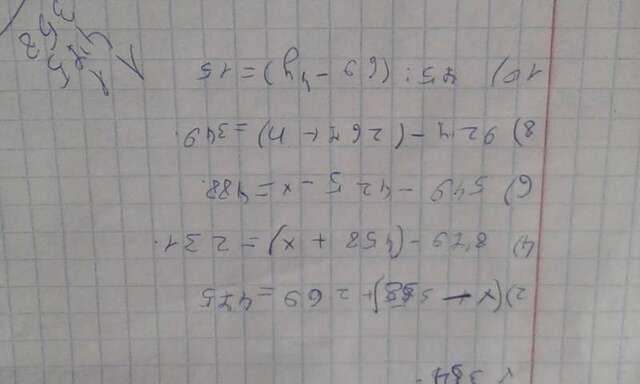 334.
2) (x - 358) + 269 = 475
4) 879 - (458 + x) = 231.
6) 549 - 425 - x = 488.
8) 927 - (267 + n) = 349.
10) 75 : (69 - 4y) = 15
475
358